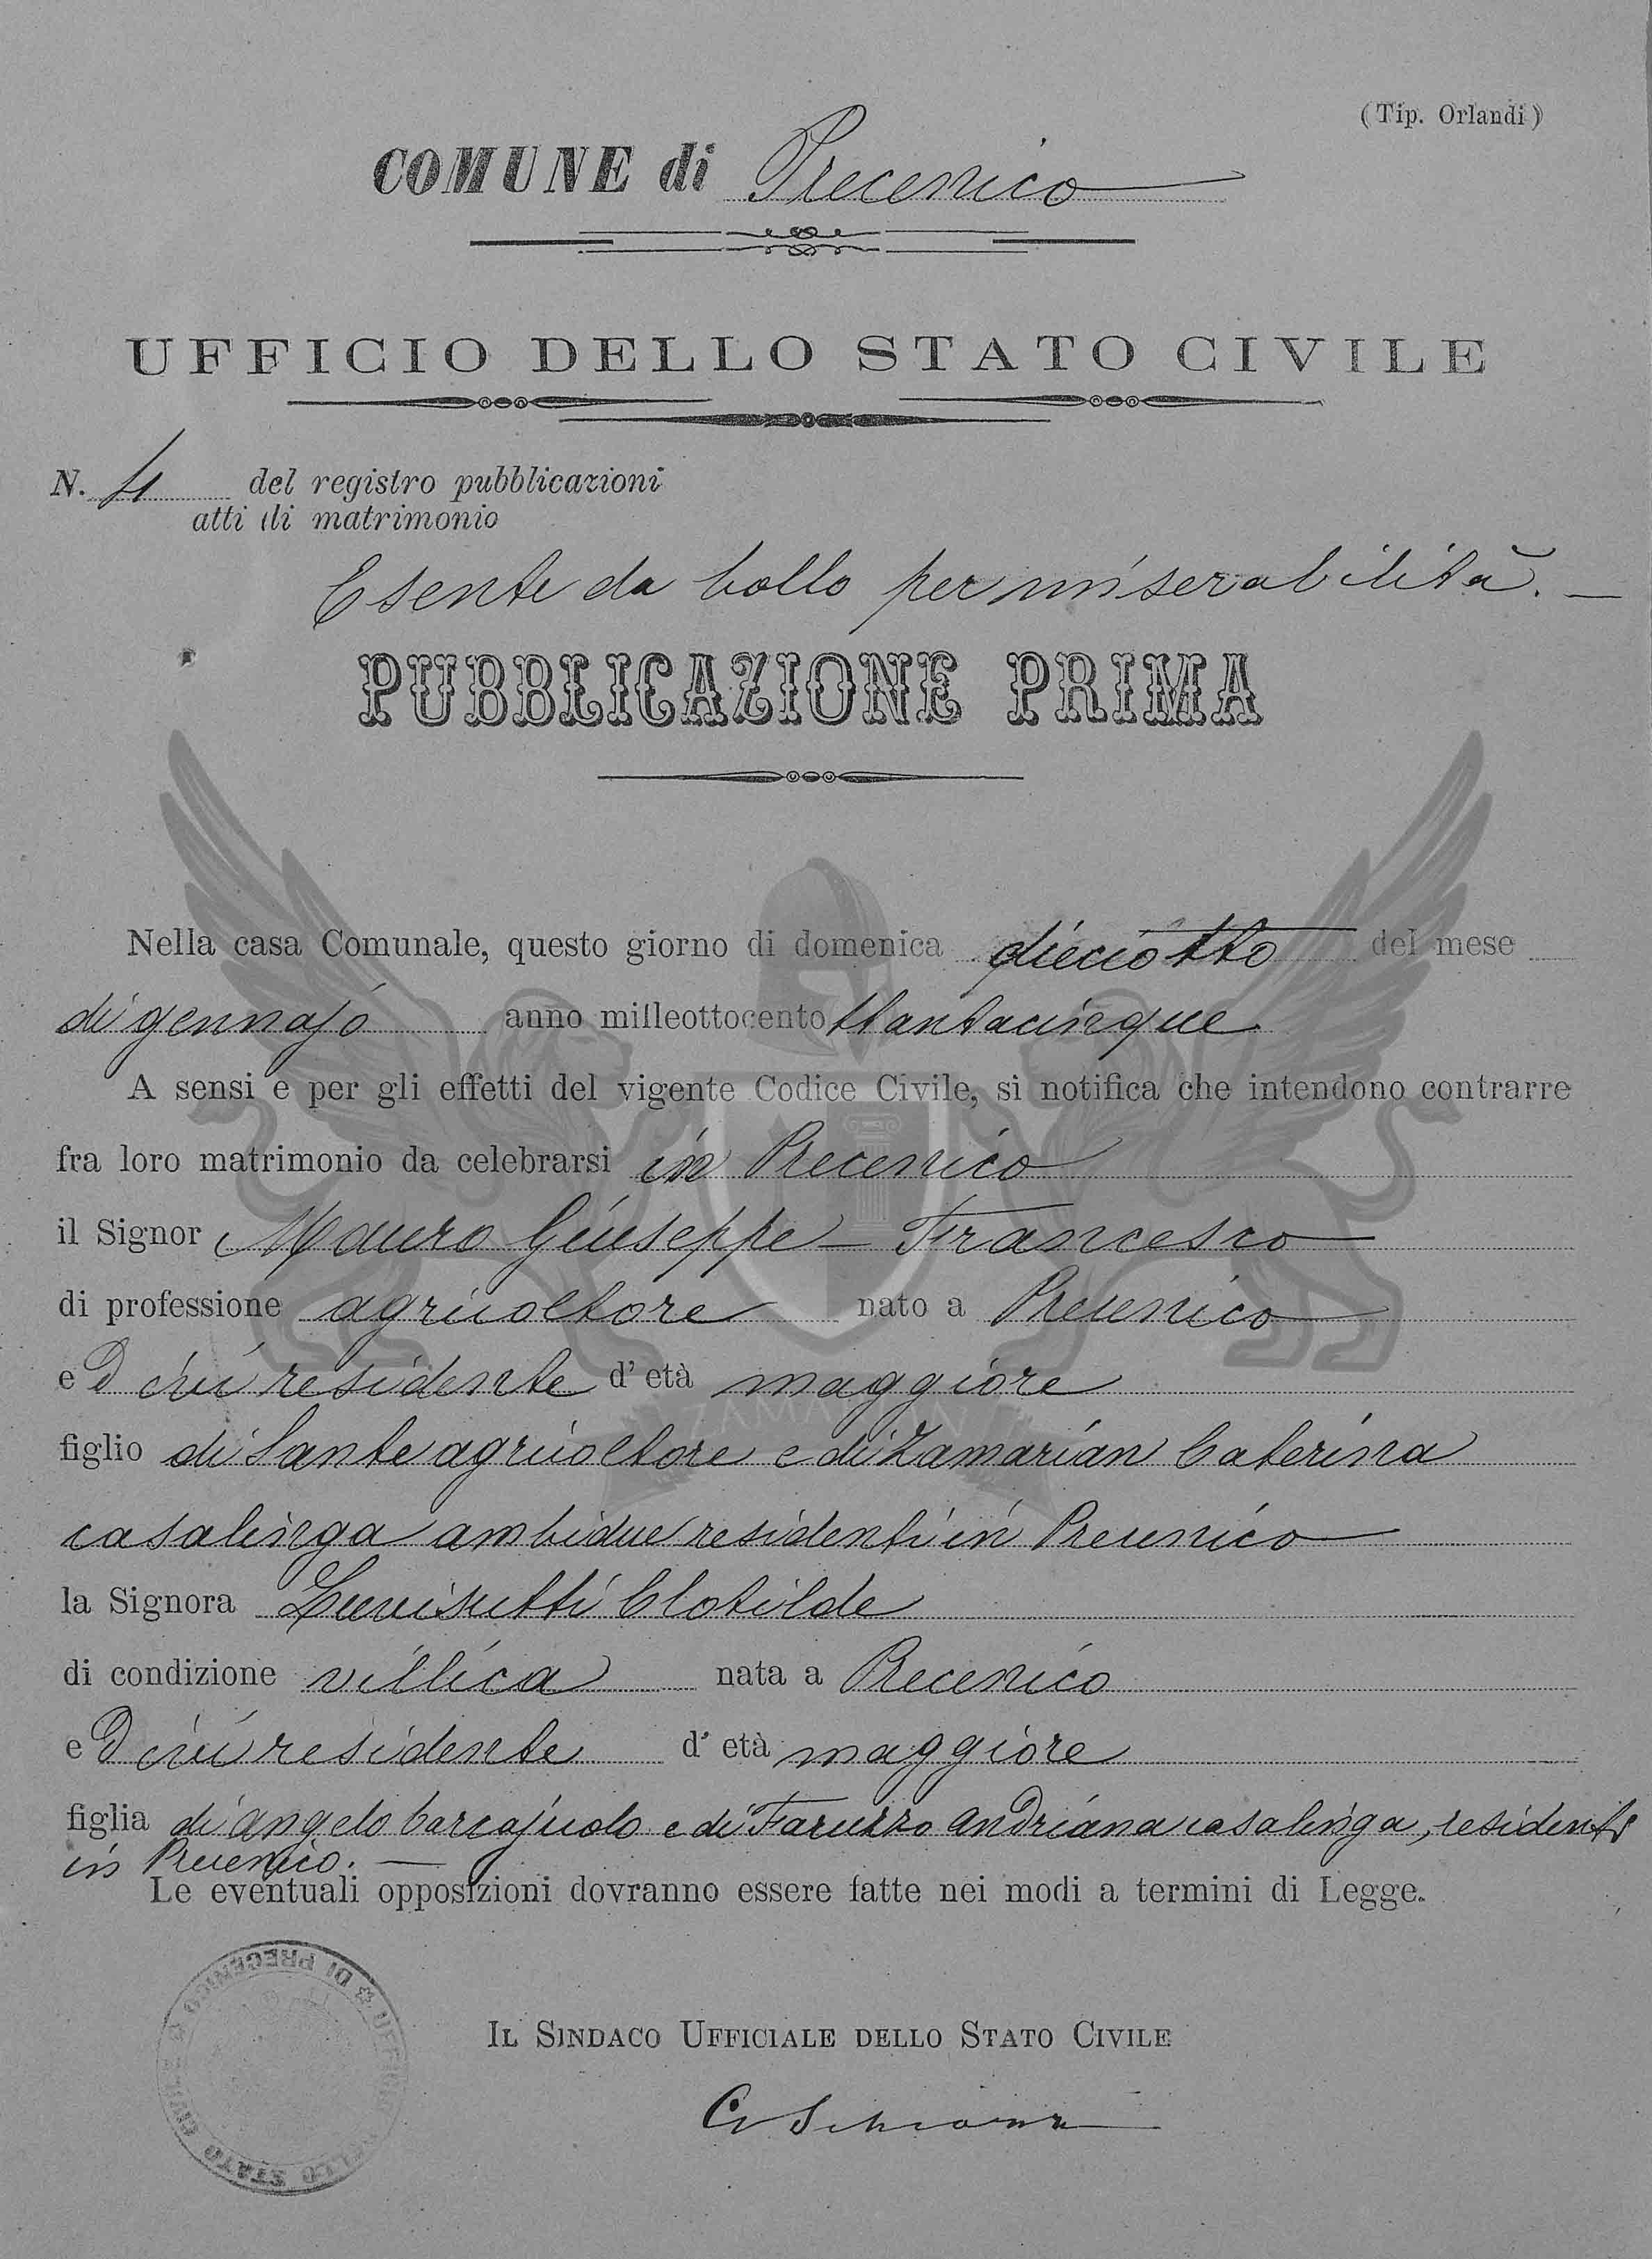 (Tip. Orlandi)
COMUNE di Precenico
UFFICIO DELLO STATO CIVILE
N. 4 del registro pubblicazioni
atti di matrimonio
Esente da bollo per miserabilità. —
PUBBLICAZIONE PRIMA
Nella casa Comunale, questo giorno di domenica dieciotto del mese
di gennajo anno milleottocento ttantacinque
A sensi e per gli effetti del vigente Codice Civile, si notifica che intendono contrarre
fra loro matrimonio da celebrarsi in Precenico
il Signor Mauro Giuseppe - Francesco
di professione agricoltore nato a Precenico
ed ivi residente d' età maggiore
figlio di Sante agricoltore e di Zamarian Caterina
casalinga ambidue residenti in Precenico
la Signora Luvisutti Clotilde
di condizione villica nata a Precenico
ed ivi residente d' età maggiore
figlia di Angelo barcajuolo e di Faruzzo Andriana casalinga, residenti
in Precenico. —
Le eventuali opposizioni dovranno essere fatte nei modi a termini di Legge.
IL SINDACO UFFICIALE DELLO STATO CIVILE
UFFICIO DELLO STATO CIVILE * DI PRECENICO *